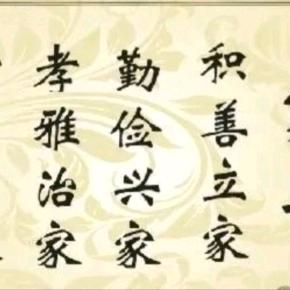 积善立家
勤俭兴家
孝雅治家